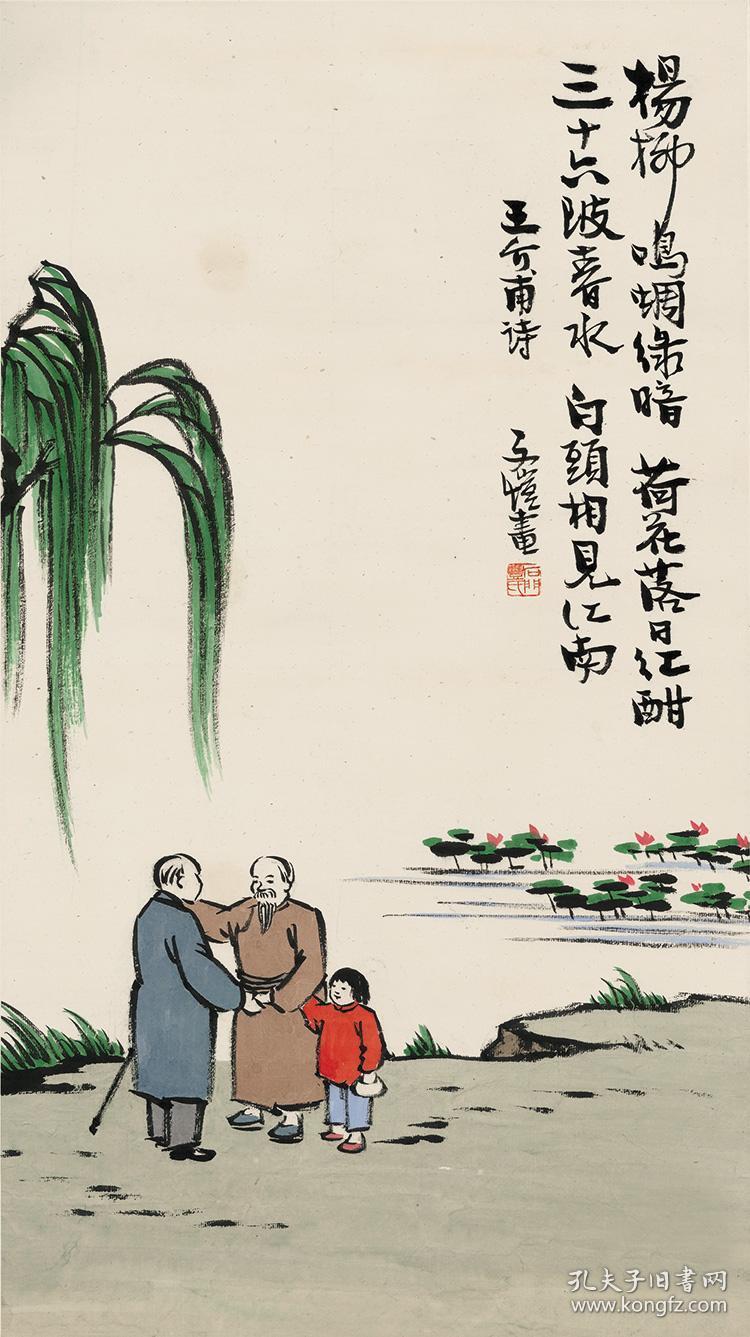 楊柳鳴蜩綠暗荷花落日红酣
三十六陂春水白頭相見江南
王介甫诗
子愷畫
石門豐氏
孔夫子旧書网
www.kongfz.com